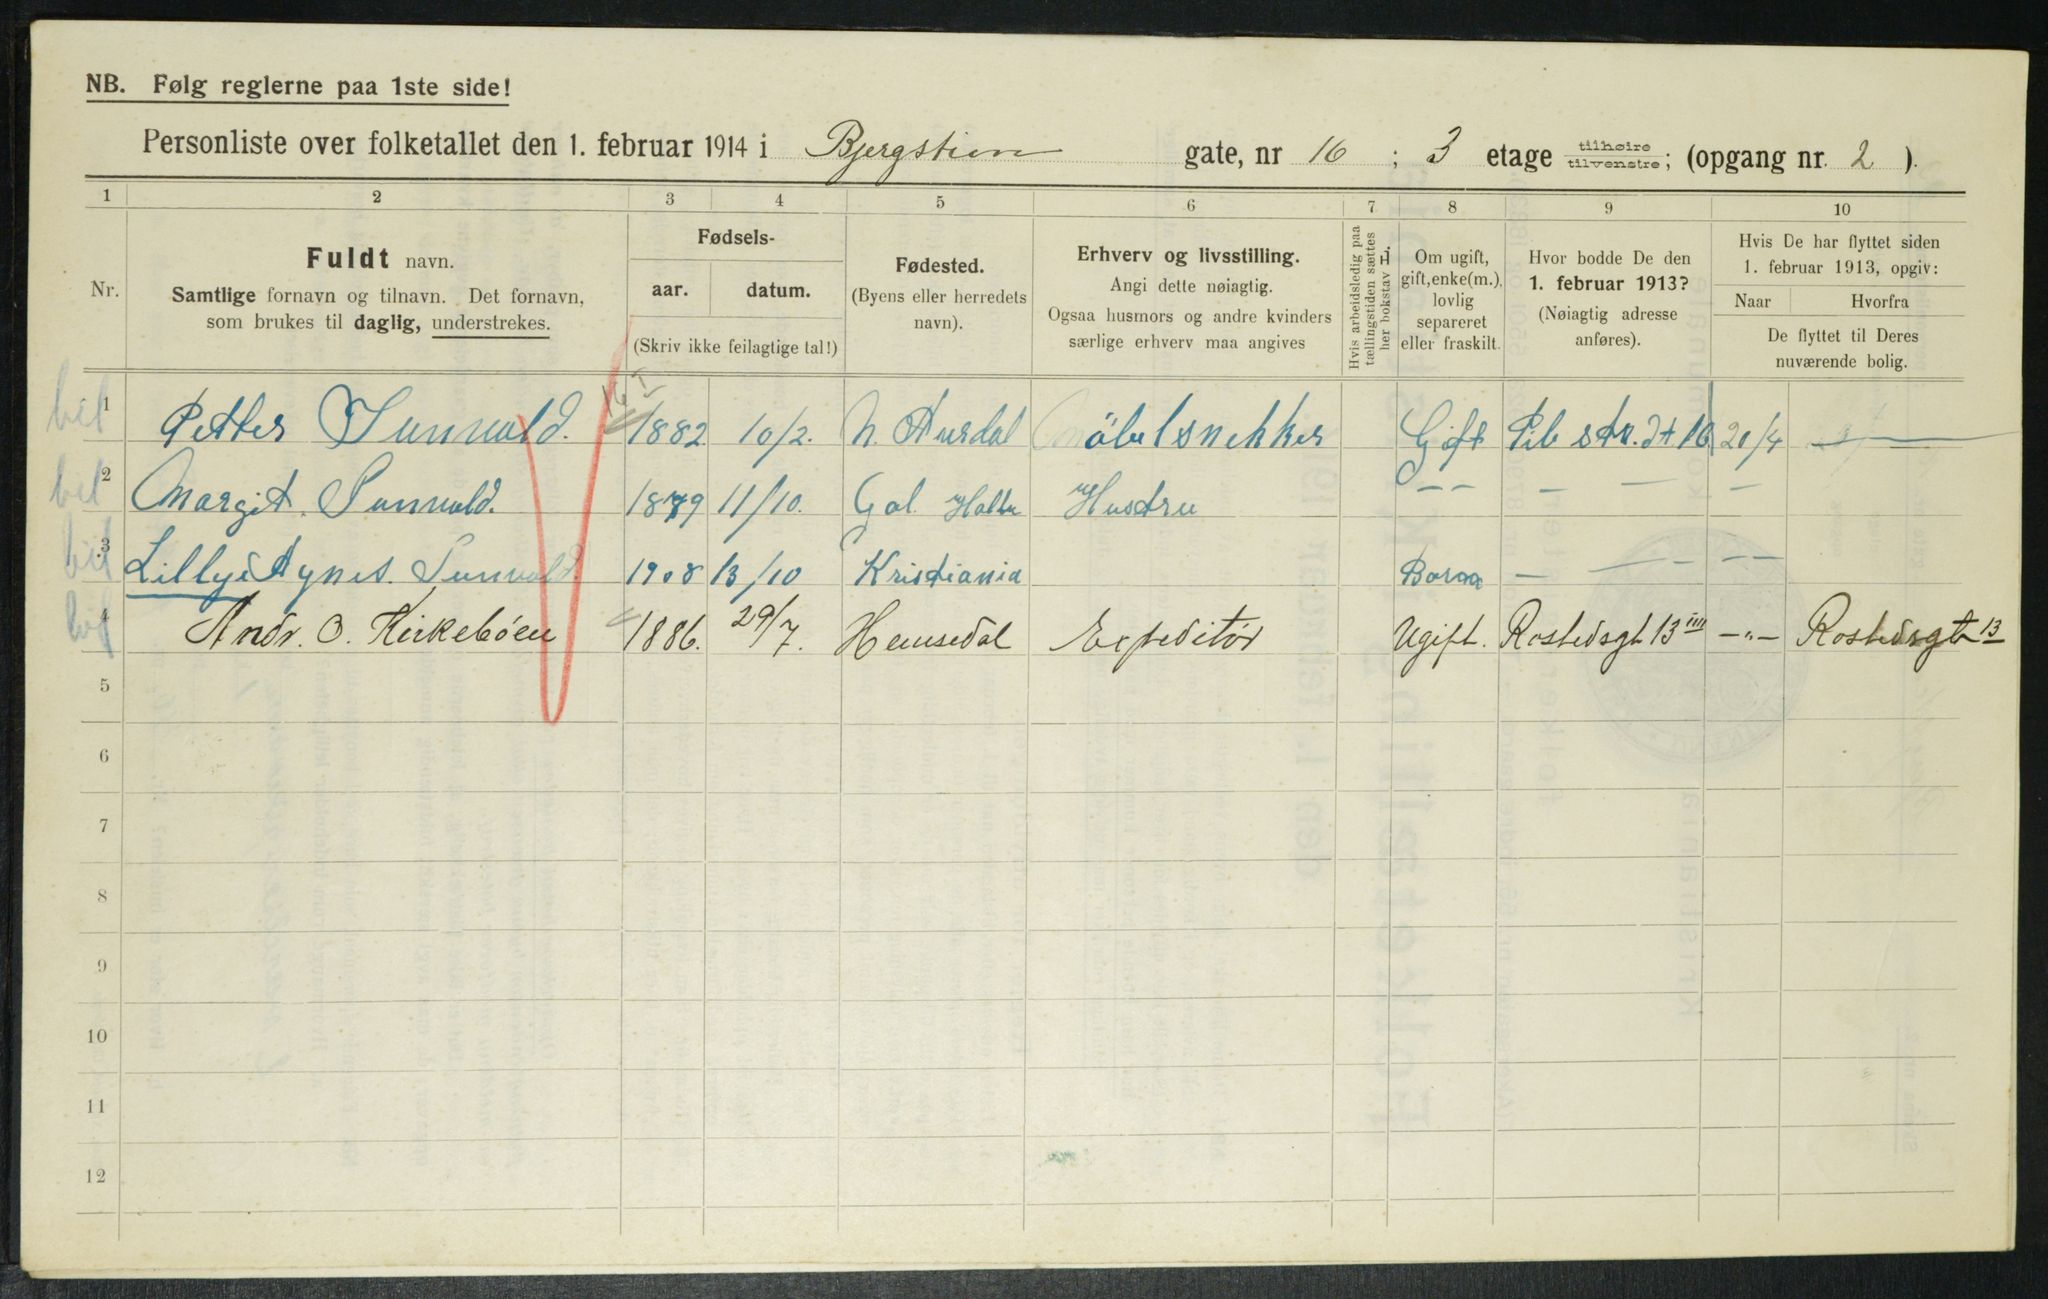 NB. Følg reglerne paa 1ste side!
Personliste over folketallet den 1. februar 1914 i Bjergstien gate, nr 16 ; 3 etage tilhøire tilvenstre; (opgang nr. 2 ).
1 2 3 4 5 6 7 8 9 10
Nr.
Fuldt navn.
Samtlige fornavn og tilnavn. Det fornavn,
som brukes til daglig, understrekes.
Fødsels-
aar. datum.
(Skriv ikke feilagtige tal!)
Fødested.
(Byens eller herredets
navn).
Erhverv og livsstilling.
Angi dette nøiagtig.
Ogsaa husmors og andre kvinders
særlige erhverv maa angives
Hvis arbeidsledig paa
tællingstiden sættes
her bokstav H.
Om ugift,
gift, enke(m.),
lovlig
separeret
eller fraskilt.
Hvor bodde De den
1. februar 1913?
(Nøiagtig adresse
anføres).
Hvis De har flyttet siden
1. februar 1913, opgiv:
Naar Hvorfra
De flyttet til Deres
nuværende bolig.
1 Petter Sunvold. 1882 10/2. N. Aurdal Möbelsnekker Gift 20/4 —
2 Margit Sunvold. 1879 11/10. Gol Hustru — — — — —
3 Lilly Agnes. Sunvold. 1908 13/10 Kristiania Barn — — — —
4 Andr. O. Kirkebøen 1886. 29/7. Hemsedal Expeditør Ugift. Rostedsgt 13 IIII —"— Rostedsgt 13
5
6
7
8
9
10
11
12